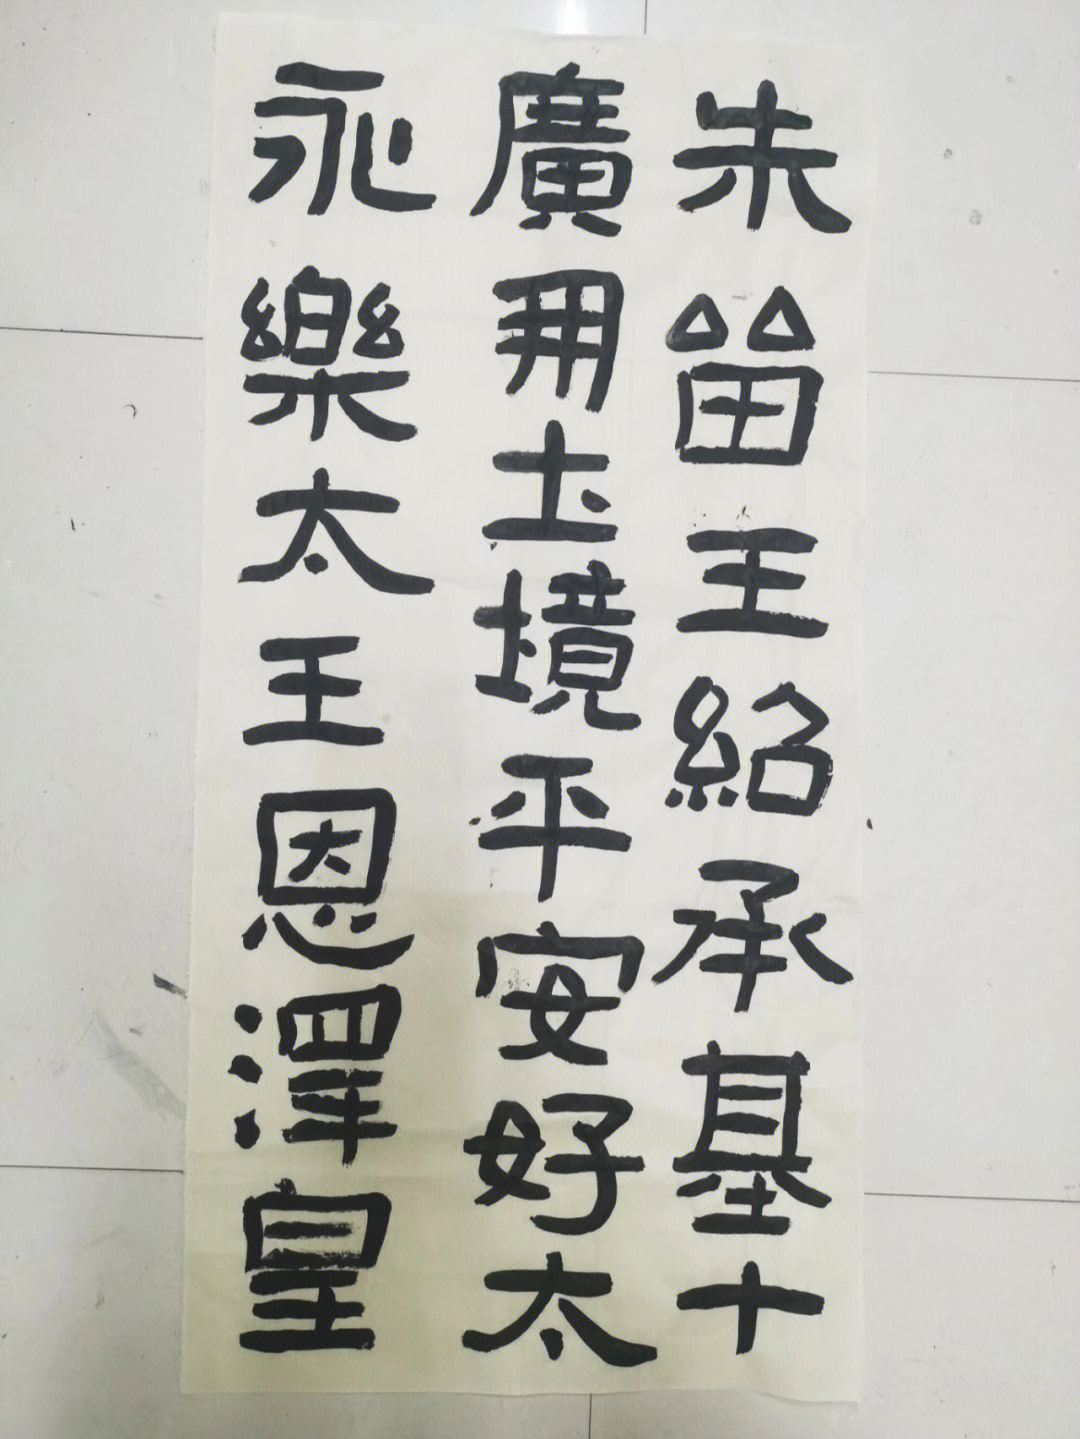 朱留王紹承基十
廣開土境平安好太
永樂太王恩澤皇